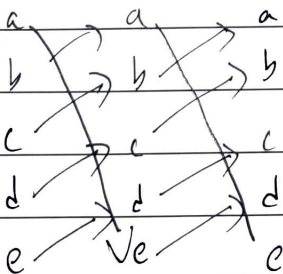 a a a
b b b
c c c
d d d
e e e